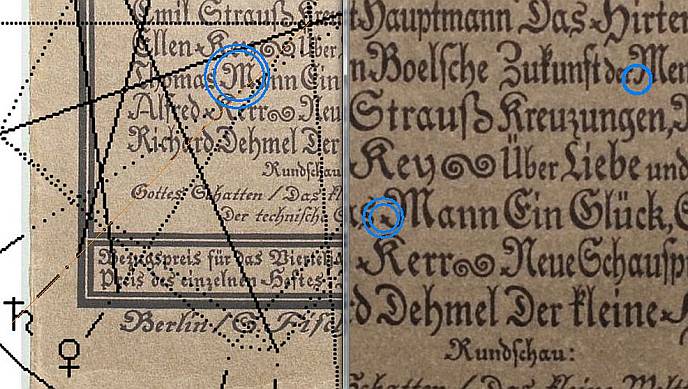 Emil Strauß Kreu
Ellen Key Über
Thomas Mann Ein
Alfred Kerr Neu
Richard Dehmel Der
Rundschau
Gottes Schatten / Das kl
Der technisch
Bezugspreis für das Viertelj
Preis des einzelnen Heftes
Berlin / S. Fisc
tHauptmann Das Hirten
nBoelsche Zukunft der Men
Strauß Kreuzungen,
Key Über Liebe und
as Mann Ein Glück,
Kerr Neue Schausp
d Dehmel Der kleine
Rundschau: